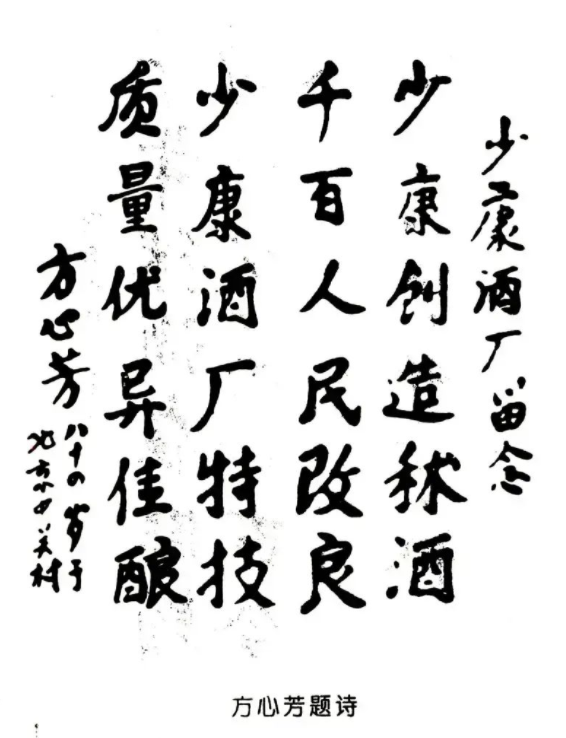 少康酒厂留念
少康创造秫酒
千百人民改良
少康酒厂特技
质量优异佳酿
方心芳
八十四岁于
北京中关村
方心芳题诗